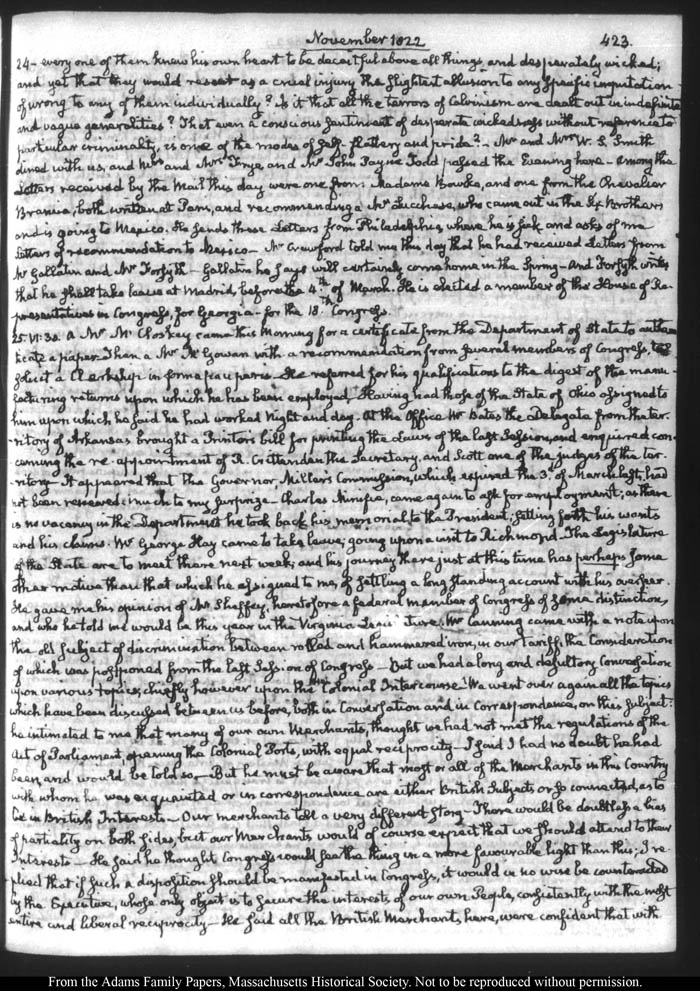 November 1822
423.
24— every one of them knew his own heart to be deceitful above all things, and desperately wicked;
and yet that they would resent as a cruel injury the slightest allusion to any specific imputation
of wrong to any of them individually? Is it that all the terrors of Calvinism are dealt out in indefinite
and vague generalities? That even a conscious sentiment of desperate wickedness without reference to
particular criminality, is one of the modes of self-flattery and pride?— Mr and Mrs W. S. Smith
dined with us, and Mr and Mrs Frye, and Mr John Payne Todd passed the Evening here— Among the
Letters received by the Mail this day were one from Madame Bourke, and one from the Chevalier
both written at Paris, and recommending a Mr Lucchesi, who came out in the Six Brothers
and is going to Mexico. He sends these Letters from Philadelphia, where he is sick and asks of me
Letters of recommendation to Mexico— Mr Crawford told me this day that he had received Letters from
Mr Gallatin and Mr Forsyth— Gallatin he says will certainly come home in the Spring— And Forsyth writes
that he shall take leave at Madrid, before the 4th of March. He is elected a member of the House of Re-
presentatives in Congress, for Georgia— for the 18th Congress.
25. VI:30. A Mr Mc Closkey came this Morning for a certificate from the Department of State to authen-
ticate a paper. Then a Mr Mc Gowan with a recommendation from several members of Congress, to
solicit a Clerkship in forma pauperis— He referred for his qualifications to the digest of the manu-
facturing returns upon which he has been employed, Having had those of the State of Ohio assigned to
him upon which he said he had worked Night and day— At the Office Mr Bates the Delegate from the ter-
ritory of Arkansas brought a Printer's bill for printing the Laws of the last Session, and enquired con-
cerning the re-appointment of R. Crittenden the Secretary, and Scott one of the judges of the ter-
ritory— It appeared that the Governor, Miller's Commission, which expired the 3d of March last, had
not been renewed: much to my surprize— Charles Ninifie, came again to ask for employment; as there
is no vacancy in the Department he took back his memorial to the President, setting forth his wants
and his claims. Mr George Hay came to take leave; going upon a visit to Richmond. The Legislature
of the State are to meet there next week; and his journey there just at this time has perhaps some
other motive than that which he assigned to me, of settling a long standing account with his overseer.
He gave me his opinion of Mr Sheffey, heretofore a federal member of Congress of some distinction,
and who he told me would be this year in the Virginia Legislature. Mr Canning came with a note upon
the old subject of discrimination between rolled and hammered iron, in our tariff, the Consideration
of which was postponed from the last Session of Congress— But we had a long and desultory Conversation
upon various topics, chiefly however upon the Colonial Intercourse. We went over again all the topics
which have been discussed between us before, both in Conversation and in Correspondence, on this subject:
he intimated to me that many of our own Merchants, thought we had not met the regulations of the
Act of Parliament, opening the Colonial Ports, with equal reciprocity— I said I had no doubt he had
been, and would be told so.— But he must be aware that most or all of the Merchants in this Country
with whom he was acquainted or in correspondence are either British Subjects or so connected, as to
be in British Interests— Our merchants told a very different story— There would be doubtless a bias
of partiality on both sides, but our Merchants would of course expect that we should attend to their
Interests— He said he thought Congress would see the thing in a more favourable light than this; I re-
plied that if such a disposition should be manifested in Congress, it would in no wise be counteracted
by the Executive, whose only object is to secure the interests of our own People, consistently with the most
entire and liberal reciprocity— He said all the British Merchants here, were confident that with
From the Adams Family Papers, Massachusetts Historical Society. Not to be reproduced without permission.